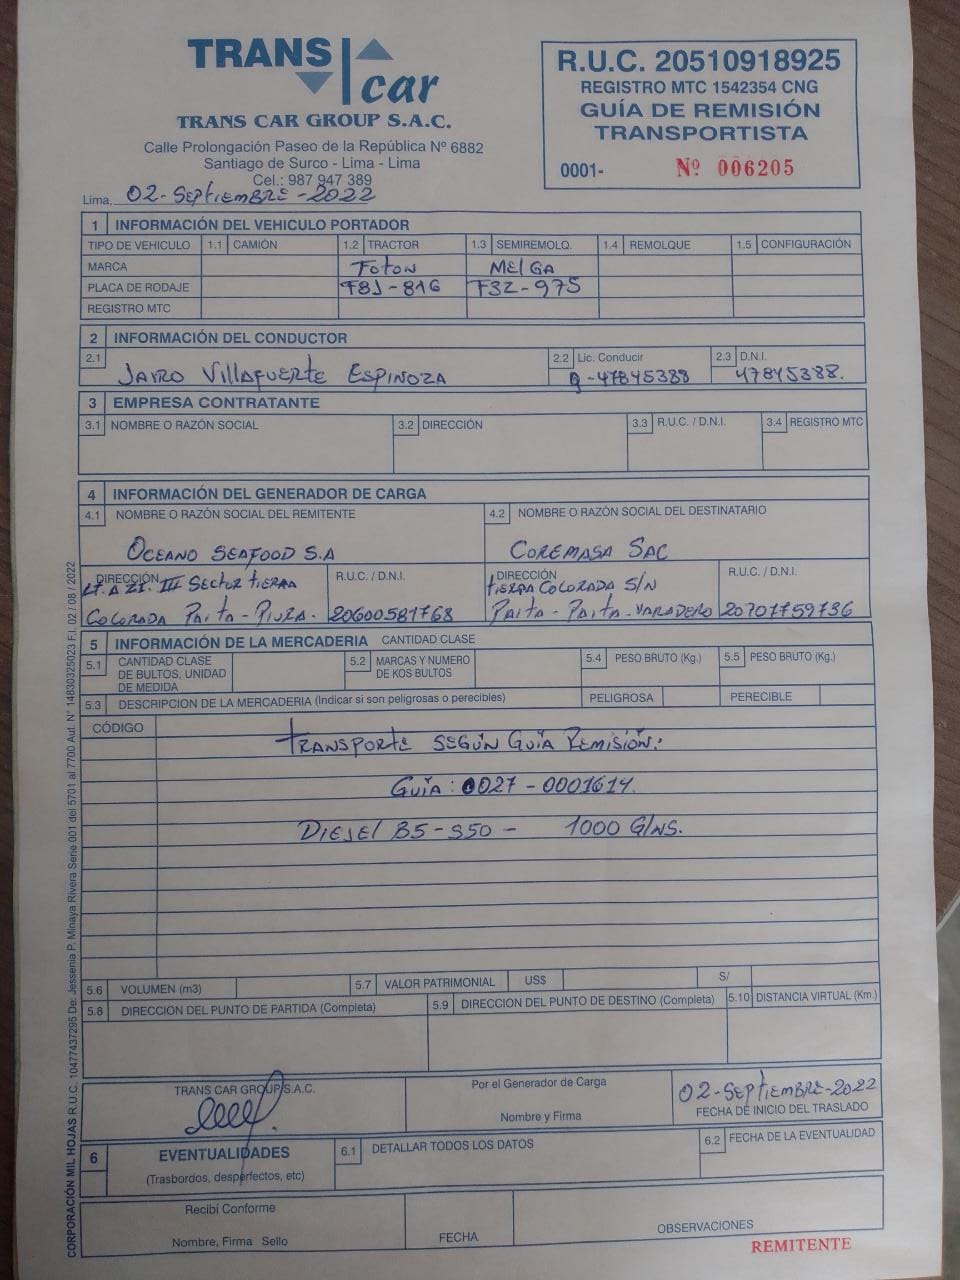 TRANS car
TRANS CAR GROUP S.A.C.
Calle Prolongación Paseo de la República Nº 6882
Santiago de Surco - Lima - Lima
Cel.: 987 947 389
R.U.C. 20510918925
REGISTRO MTC 1542354 CNG
GUÍA DE REMISIÓN
TRANSPORTISTA
0001- Nº 006205
Lima, 02-Septiembre-2022
1 INFORMACIÓN DEL VEHICULO PORTADOR
TIPO DE VEHICULO 1.1 CAMIÓN 1.2 TRACTOR 1.3 SEMIREMOLQ. 1.4 REMOLQUE 1.5 CONFIGURACIÓN
MARCA Foton MELGA
PLACA DE RODAJE F8J-816 F3Z-975
REGISTRO MTC
2 INFORMACIÓN DEL CONDUCTOR
2.1 2.2 Lic. Conducir 2.3 D.N.I.
Jairo Villafuerte Espinoza Q-47845388 47845388.
3 EMPRESA CONTRATANTE
3.1 NOMBRE O RAZÓN SOCIAL 3.2 DIRECCIÓN 3.3 R.U.C. / D.N.I. 3.4 REGISTRO MTC
4 INFORMACIÓN DEL GENERADOR DE CARGA
4.1 NOMBRE O RAZÓN SOCIAL DEL REMITENTE 4.2 NOMBRE O RAZÓN SOCIAL DEL DESTINATARIO
Oceano Seafood S.A Coremasa Sac
DIRECCIÓN R.U.C. / D.N.I. DIRECCIÓN R.U.C. / D.N.I.
III Sector tierra tierra Colorada S/N
Colorada Paita - Piura. 20600581768 Paita - Paita - Varadero 20701759736
5 INFORMACIÓN DE LA MERCADERIA CANTIDAD CLASE
5.1 CANTIDAD CLASE DE BULTOS, UNIDAD DE MEDIDA 5.2 MARCAS Y NUMERO DE KOS BULTOS 5.4 PESO BRUTO (Kg.) 5.5 PESO BRUTO (Kg.)
5.3 DESCRIPCION DE LA MERCADERIA (Indicar si son peligrosas o perecibles) PELIGROSA PERECIBLE
CÓDIGO
Transporte según Guía Remisión:
Guía: 0027-0001614.
Diesel B5-S50 - 1000 Glns.
5.6 VOLUMEN (m3) 5.7 VALOR PATRIMONIAL US$ S/
5.8 DIRECCION DEL PUNTO DE PARTIDA (Completa) 5.9 DIRECCION DEL PUNTO DE DESTINO (Completa) 5.10 DISTANCIA VIRTUAL (Km.)
TRANS CAR GROUP S.A.C. Por el Generador de Carga 02-Septiembre-2022
Nombre y Firma FECHA DE INICIO DEL TRASLADO
6 EVENTUALIDADES 6.1 DETALLAR TODOS LOS DATOS 6.2 FECHA DE LA EVENTUALIDAD
(Trasbordos, desperfectos, etc)
Recibí Conforme
Nombre, Firma Sello FECHA OBSERVACIONES
REMITENTE
CORPORACIÓN MIL HOJAS R.U.C. 10477437295 De: Jessenia P. Minaya Rivera Serie 001 del 5701 al 7700 Aut. N° 14830325023 F.I. 02 / 08 / 2022